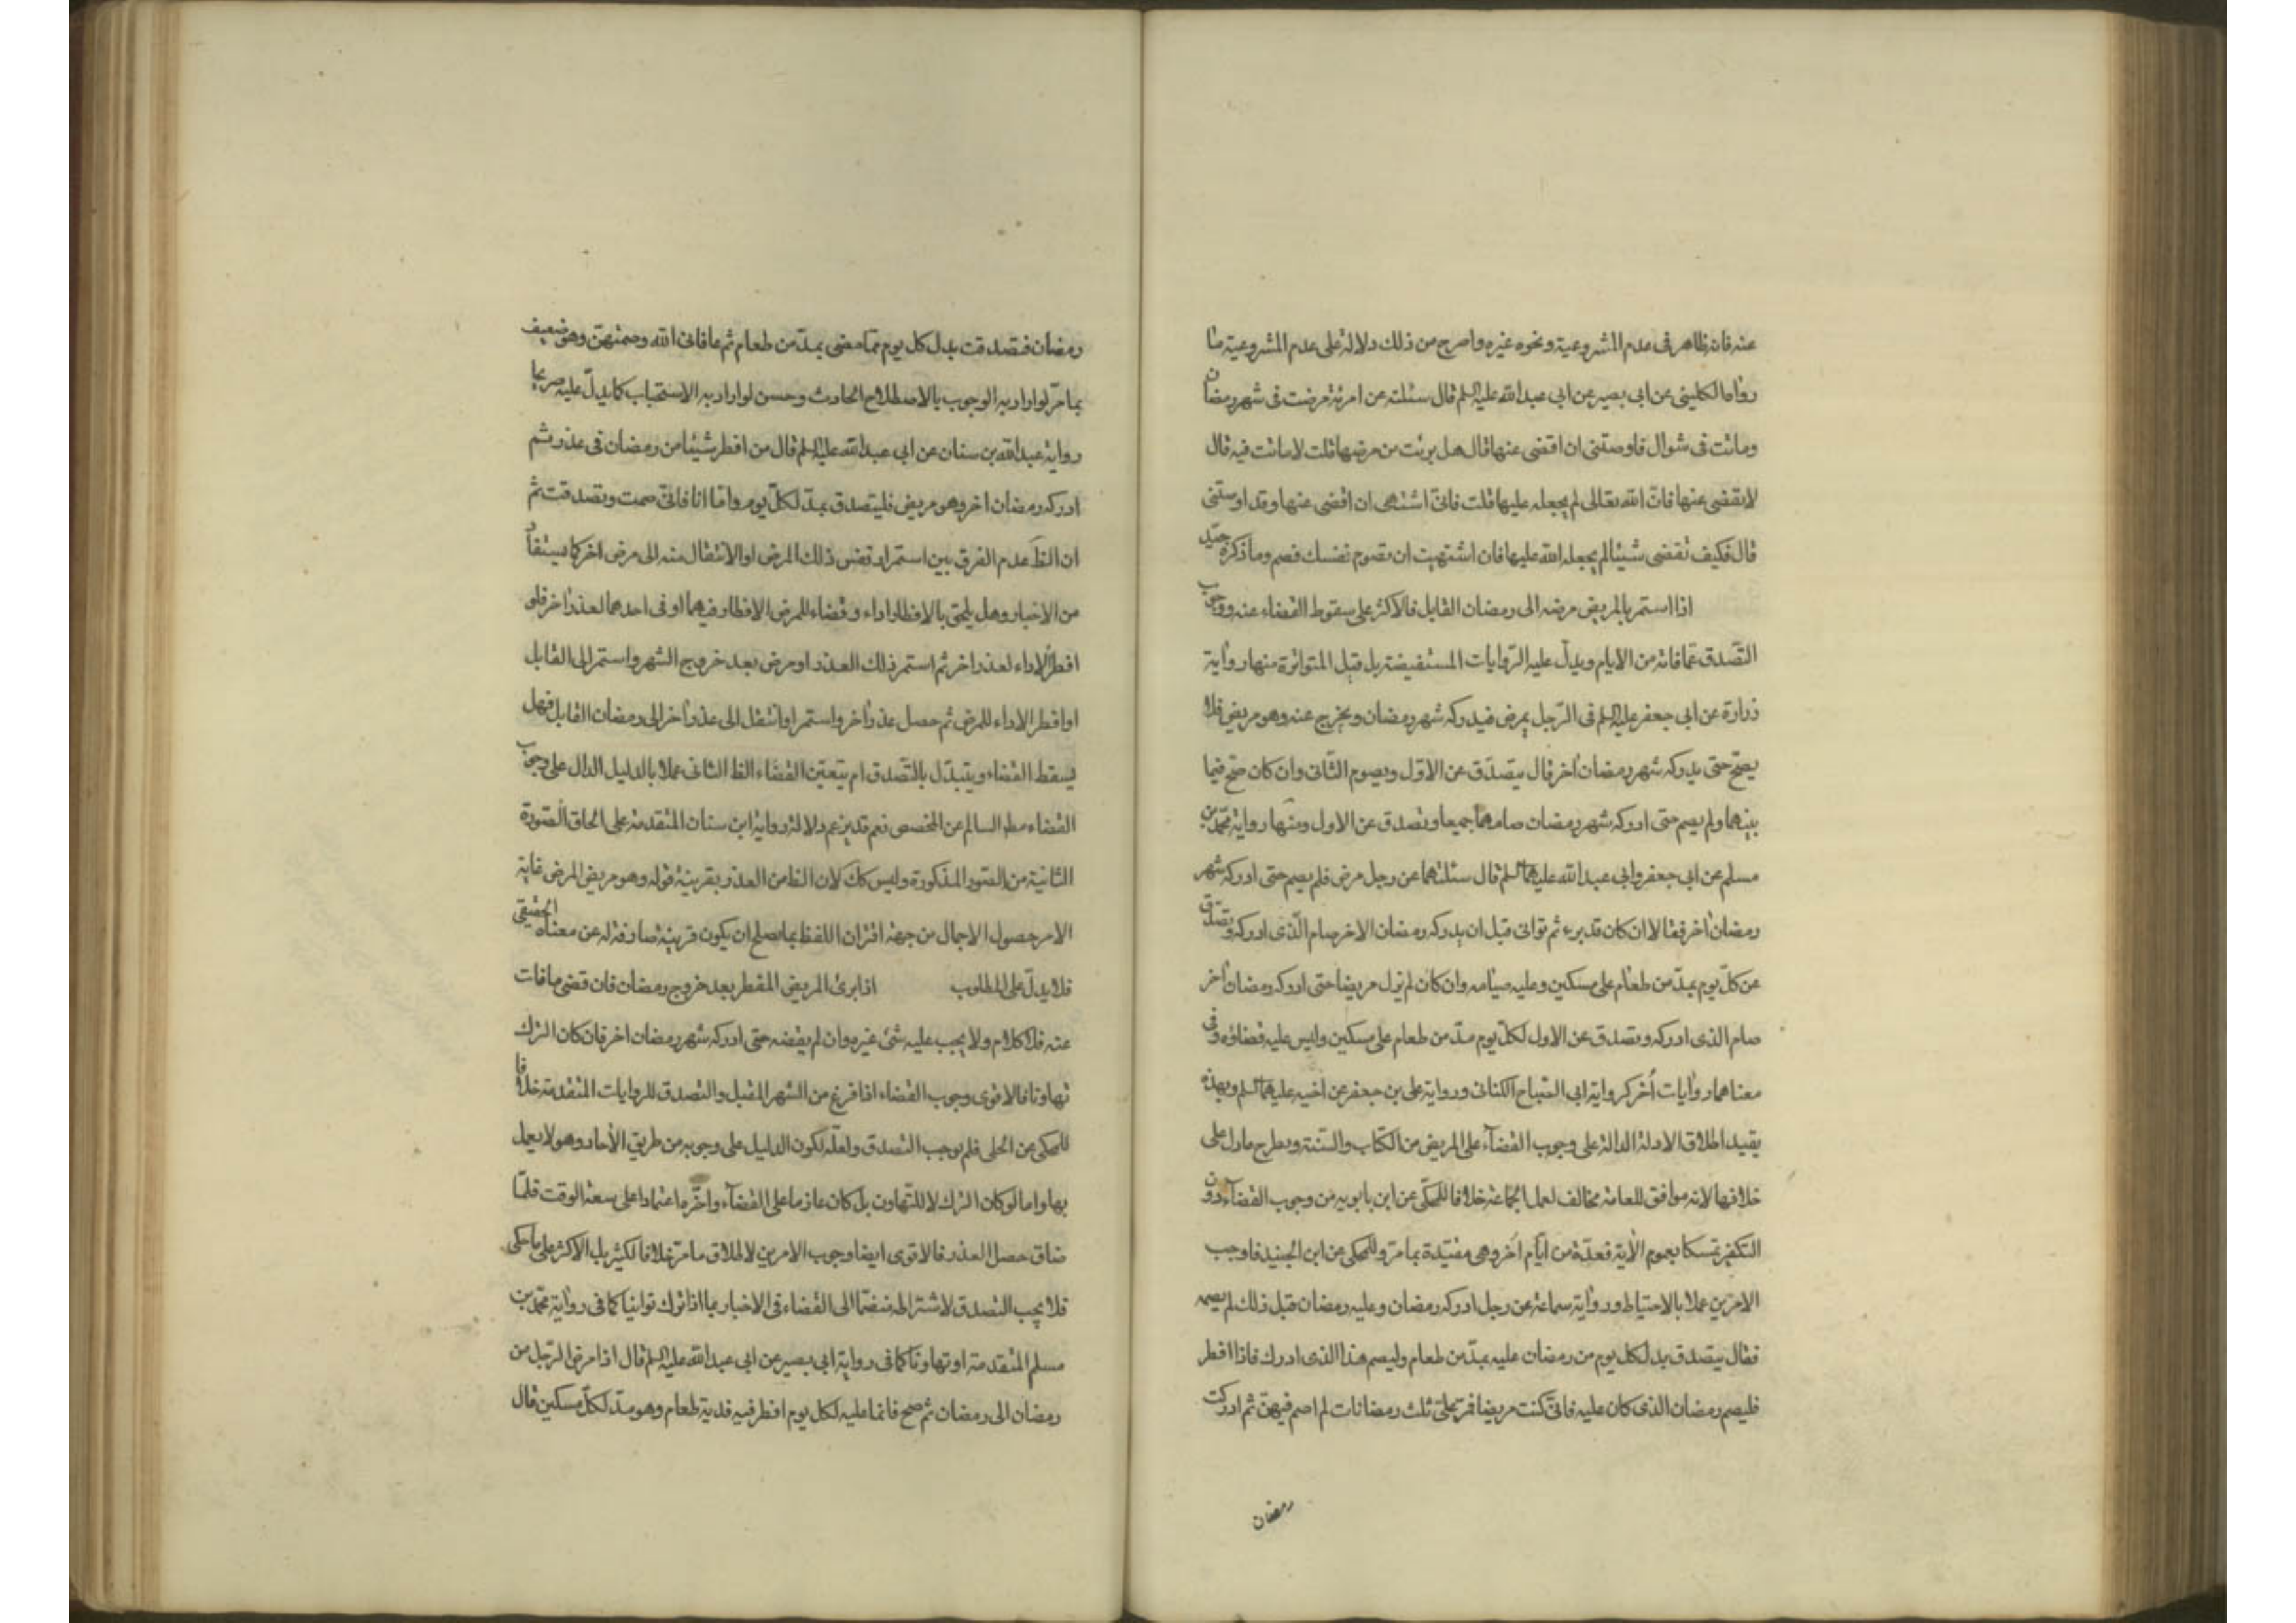 عنه فانه ظاهر فى عدم المشروعية ونحوه غيره واصرح من ذلك دلالة على عدم المشروعية ما
رواه الكلينى عن ابى بصير عن ابى عبد الله عليه السلم قال سئلته عن امرئة مرضت فى شهر رمضان
وماتت فى شوال فاوصتنى ان اقضى عنها قال هل برئت من مرضها قلت لا ماتت فيه قال
لا يقضى عنها فانّ الله تعالى لم يجعله عليها قلت فانّى اشتهى ان اقضى عنها وقد اوصتنى
قال فكيف تقضى شيئا لم يجعله الله عليها فان اشتهيت ان تصوم نفسك فصم وما ذكره جيّد
اذا استمر بالمريض مرضه الى رمضان القابل فالاكثر على سقوط القضاء عنه ووجوب
التّصدق عما فاته من الايام ويدلّ عليه الرّوايات المستفيضة بل قيل المتواترة منها رواية
زرارة عن ابى جعفر عليه السلم فى الرّجل يمرض فيدركه شهر رمضان ويخرج عنه وهو مريض فلا
يصحّ حتى يدركه شهر رمضان اخر قال يتصدّق عن الاوّل ويصوم الثّانى وان كان صحّ فيما
بينهما ولم يصم حتى ادركه شهر رمضان صامهما جميعا وتصدق عن الاول ومنها رواية محمّد بن
مسلم عن ابى جعفر وابى عبد الله عليهما السلم قال سئلتهما عن رجل مرض فلم يصم حتى ادركه شهر
رمضان اخر فقالا ان كان قد برء ثم توانى قبل ان يدركه رمضان الاخر صام الّذى ادركه وتصدّق
عن كلّ يوم بمدّ من طعام على مسكين وعليه صيامه وان كان لم يزل مريضا حتى ادركه رمضان اخر
صام الذى ادركه وتصدق عن الاول لكلّ يوم مدّ من طعام على مسكين وليس عليه قضاؤه وفى
معناهما روايات اُخر كرواية ابى الصّباح الكنانى ورواية على بن جعفر عن اخيه عليهما السلم وبهذه
يقيد اطلاق الادلة الدالة على وجوب القضآء على المريض من الكتاب والسّنة ويطرح ما دل على
خلافها لانه موافق للعامة مخالف لعمل الجماعة خلافا للمحكّى عن ابن بابويه من وجوب القضآء دون
التكفير تمسكا بعموم الاية فعدّة من ايّام اُخر وهى مقيّدة بما مرّ وللمحكى عن ابن الجنيد فاوجب
الامرين عملا بالاحتياط ورواية سماعة عن رجل ادركه رمضان وعليه رمضان قبل ذلك لم يصمه
فقال يتصدق بدل كل يوم من رمضان عليه بمدّ من طعام وليصم هذا الذى ادرك فاذا افطر
فليصم رمضان الذى كان عليه فانّى كنت مريضا فمرّ علىّ ثلث رمضانات لم اصم فيهنّ ثم ادركت
رمضان
رمضان فتصدقت بدل كل يوم ممّا مضى بمدّ من طعام ثم عافانى الله وصمتهنّ وهو ضعيف
بما مرّ لو اراد به الوجوب بالاصطلاح الحادث وحسن لو اراد به الاستحباب كما يدلّ عليه صريحا
رواية عبد الله بن سنان عن ابى عبد الله عليه السلم قال من افطر شيئا من رمضان فى عذر ثم
ادركه رمضان اخر وهو مريض فليتصدق بمدّ لكلّ يوم وامّا انا فانّى صمت وتصدقت ثم
ان الظّ عدم الفرق بين استمرار نفس ذلك المرض او الانتقال منه الى مرض اخر كما يستفاد
من الاخبار وهل يلحق بالافطار اداء وقضاء للمرض الافطار فيهما او فى احدهما لعذر اخر فلو
افطر الاداء لعذر اخر ثم استمر ذلك العذر او مرض بعد خروج الشهر واستمر الى القابل
او افطر الاداء للمرض ثم حصل عذر اخر واستمر او انتقل الى عذر اخر الى رمضان القابل فهل
يسقط القضاء ويتبدّل بالتّصدق ام يتعيّن القضاء الظ الثانى عملا بالدليل الدال على وجوب
القضاء مطلقا السالم عن المخصص نعم قد يزعم دلالة رواية ابن سنان المتقدمة على الحاق الصّورة
الثانية من الصّور المذكورة وليس كك لان الظ من العذر بقرينة قوله وهو مريض المرض غاية
الامر حصول الاجمال من جهة اقتران اللفظ بما يصلح ان يكون قرينة صارفة له عن معناه الحقيقى
فلا يدلّ على المطلوب اذا برئ المريض المفطر بعد خروج رمضان فان قضى ما فات
عنه فلا كلام ولا يجب عليه شئ غيره وان لم يقضه حتى ادركه شهر رمضان اخر فان كان الترك
تهاونا فالاقوى وجوب القضاء اذا فرغ من الشهر المقبل والتصدق للروايات المتقدمة خلافا
للمحكى عن الحلى فلم يوجب التصدق ولعلّه لكون الدليل على وجوبه من طريق الاحاد وهو لا يعمل
بها واما لو كان الترك لا للتهاون بل كان عازما على القضآء واخّر ما اعتمادا على سعة الوقت فلمّا
ضاق حصل العذر فالاقوى ايضا وجوب الامرين لاطلاق ما مرّ خلافا لكثير بل الاكثر على ما حكى
فلا يجب التصدق لاشتراطه منضمّا الى القضاء فى الاخبار بما اذا ترك توانيا كما فى رواية محمّد بن
مسلم المتقدمة او تهاونا كما فى رواية ابى بصير عن ابى عبد الله عليه السلم قال اذا مرض الرّجل من
رمضان الى رمضان ثم صح فانما عليه لكل يوم افطر فيه فدية طعام وهو مدّ لكلّ مسكين قال